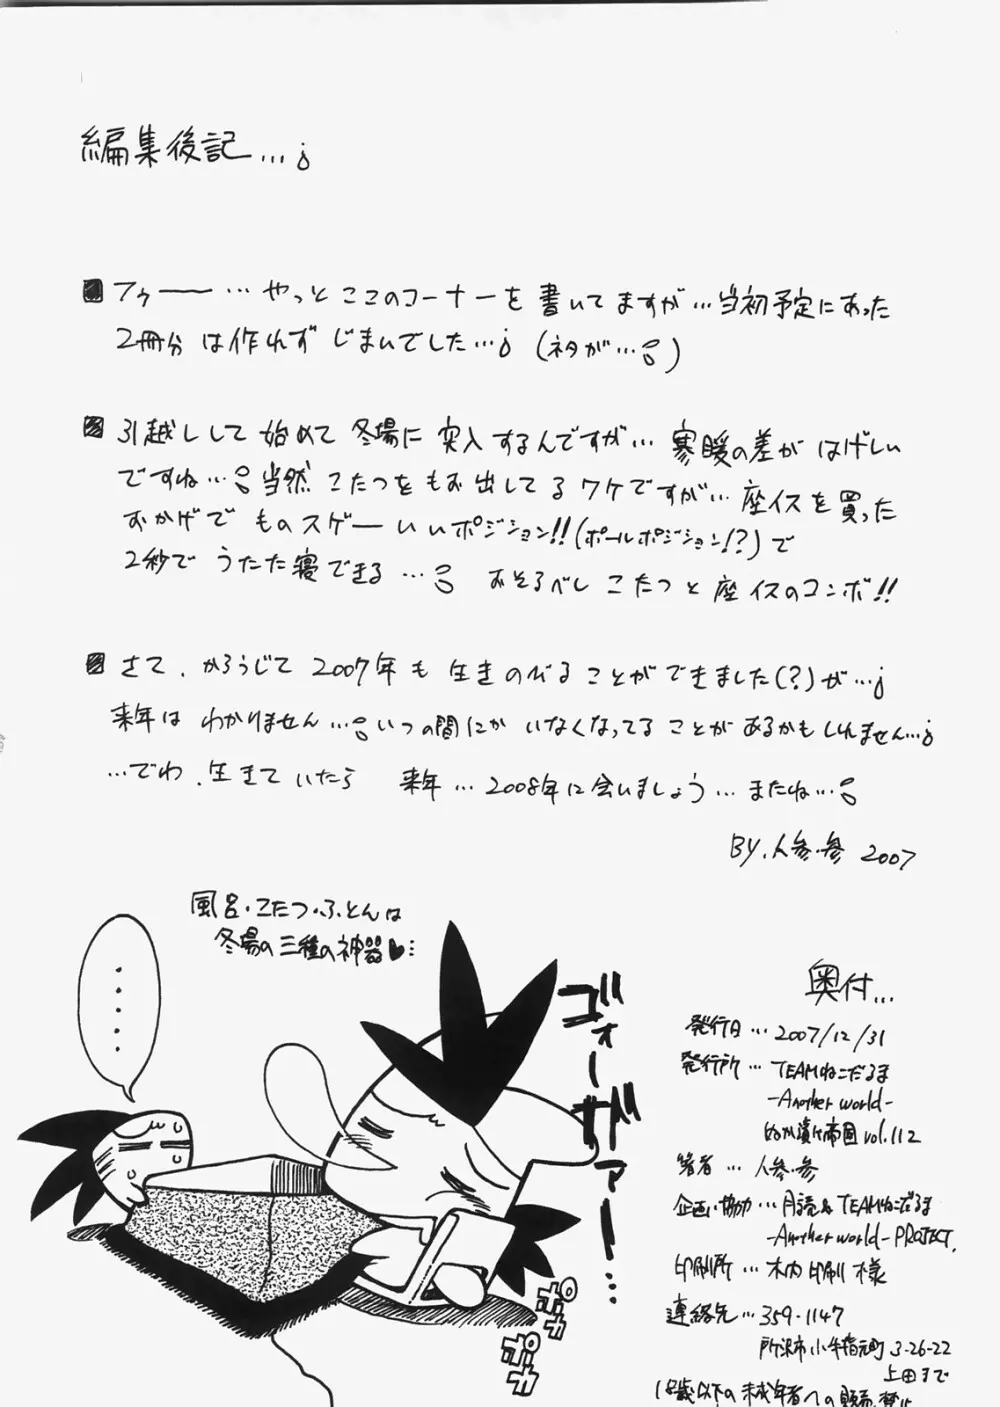 編集後記…;
■ フゥーー…やっとここのコーナーを書いてますが…当初予定にあった
2冊分は作れずじまいでした…; (ネタが…;)
■ 引越しして始めて冬場に突入するんですが…寒暖の差がはげしい
ですね…;当然こたつをもお出してるワケですが…座イスを買った
おかげでものスゲーいいポジション!!(ポールポジション!?)で
2秒でうたた寝できる…; おそるべしこたつと座イスのコンボ!!
■ さて、かろうじて2007年も生きのびることができました(?)が…;
来年はわかりません…;いつの間にかいなくなってることがあるかもしれません…;
…でわ、生きていたら 来年…2008年に会いましょう…またね…;
BY.人参・参 2007
風呂・こたつ・ふとんは
冬場の三種の神器♥…
・・・・・
ゴォーーザァーー…
ポカ
ポカ
奥付…
発行日…2007/12/31
発行所…TEAMねこだるま
-Another world-
ぬか漬け帝国 vol.112
著者…人参・参
企画・協力…月読&TEAMねこだるま
-Another world-PROJECT.
印刷所…木内印刷様
連絡先…359-1147
所沢市小手指元町3-26-22
上田まで
18歳以下の未成年者への販売禁止